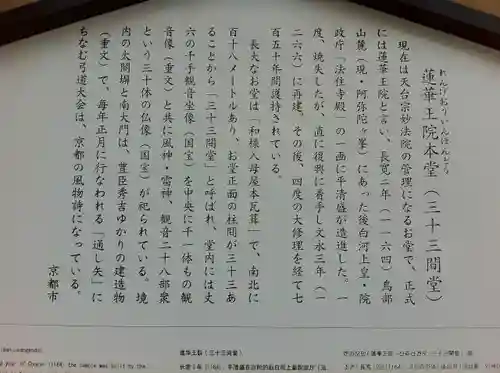 れんげおういんほんどう
蓮華王院本堂(三十三間堂)
現在は天台宗妙法院の管理になるお堂で、正式
には蓮華王院と言い、長寛二年(一一六四)鳥部
山麓(現・阿弥陀ヶ峯)にあった後白河上皇・院
政庁「法住寺殿」の一画に平清盛が造進した。一
度、焼失したが、直に復興に着手し文永三年(一
二六六)に再建、その後、四度の大修理を経て七
百五十年間護持されている。
長大なお堂は「和様入母屋本瓦葺」で、南北に
百十八メートルあり、お堂正面の柱間が三十三あ
ることから「三十三間堂」と呼ばれ、堂内には丈
六の千手観音坐像(国宝)を中央に千一体もの観
音像(重文)と共に風神・雷神、観音二十八部衆
という三十体の仏像(国宝)が祀られている。境
内の太閤塀と南大門は、豊臣秀吉ゆかりの建造物
(重文)で、毎年正月に行なわれる「通し矢」に
ちなむ弓道大会は、京都の風物詩になっている。
京都市